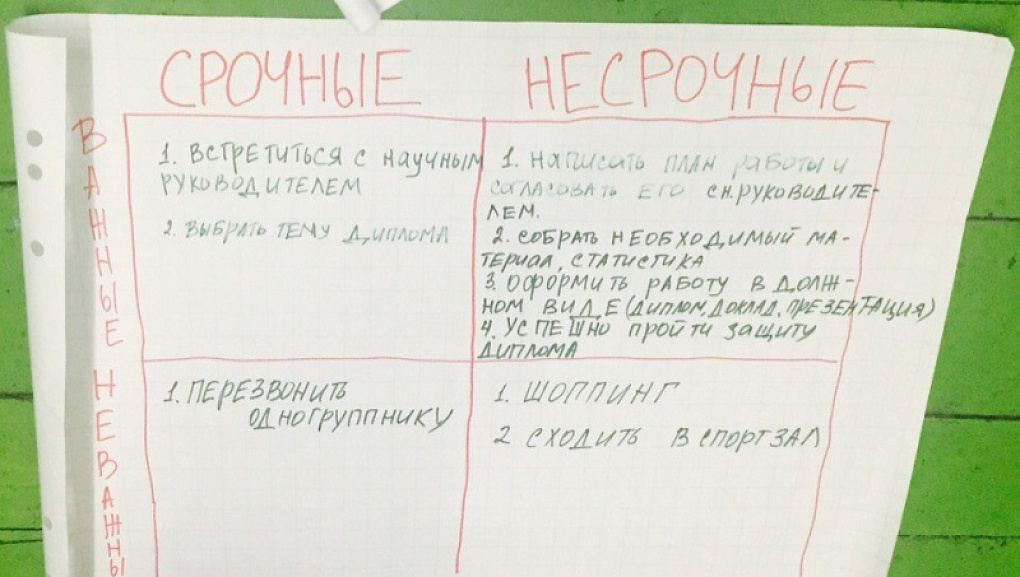 СРОЧНЫЕ
НЕСРОЧНЫЕ
ВАЖНЫЕ
1. ВСТРЕТИТЬСЯ С НАУЧНЫМ
РУКОВОДИТЕЛЕМ
2. ВЫБРАТЬ ТЕМУ ДИПЛОМА
1. НАПИСАТЬ ПЛАН РАБОТЫ И
СОГЛАСОВАТЬ ЕГО С Н.РУКОВОДИТЕ-
ЛЕМ.
2. СОБРАТЬ НЕОБХОДИМЫЙ МА-
ТЕРИАЛ, СТАТИСТИКА
3. ОФОРМИТЬ РАБОТУ В ДОЛЖ-
НОМ ВИДЕ (ДИПЛОМ, ДОКЛАД, ПРЕЗЕНТАЦИЯ)
4. УСПЕШНО ПРОЙТИ ЗАЩИТУ
ДИПЛОМА
НЕВАЖНЫ
1. ПЕРЕЗВОНИТЬ
ОДНОГРУППНИКУ
1. ШОППИНГ
2 СХОДИТЬ В СПОРТЗАЛ